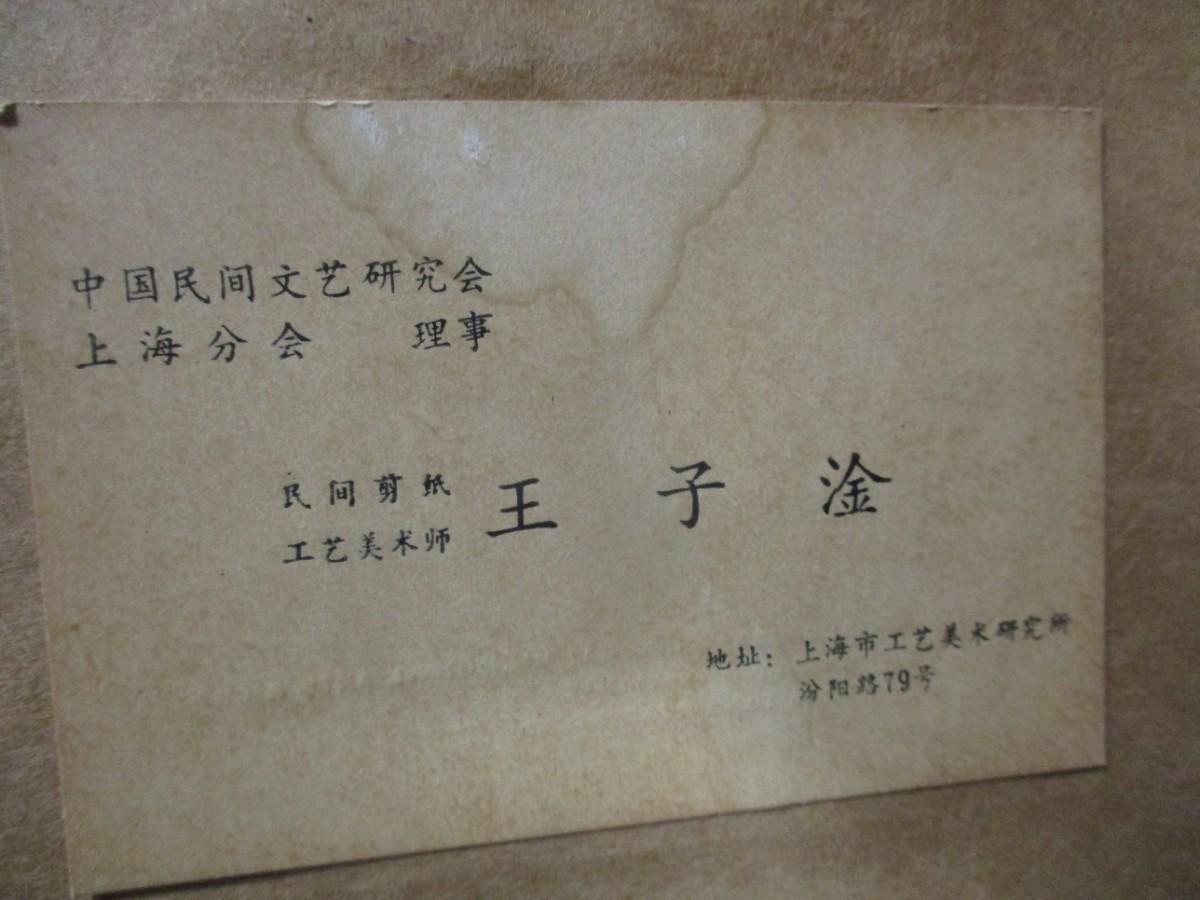 中国民间文艺研究会
上海分会 理事
民间剪纸
工艺美术师 王子淦
地址：上海市工艺美术研究所
汾阳路79号